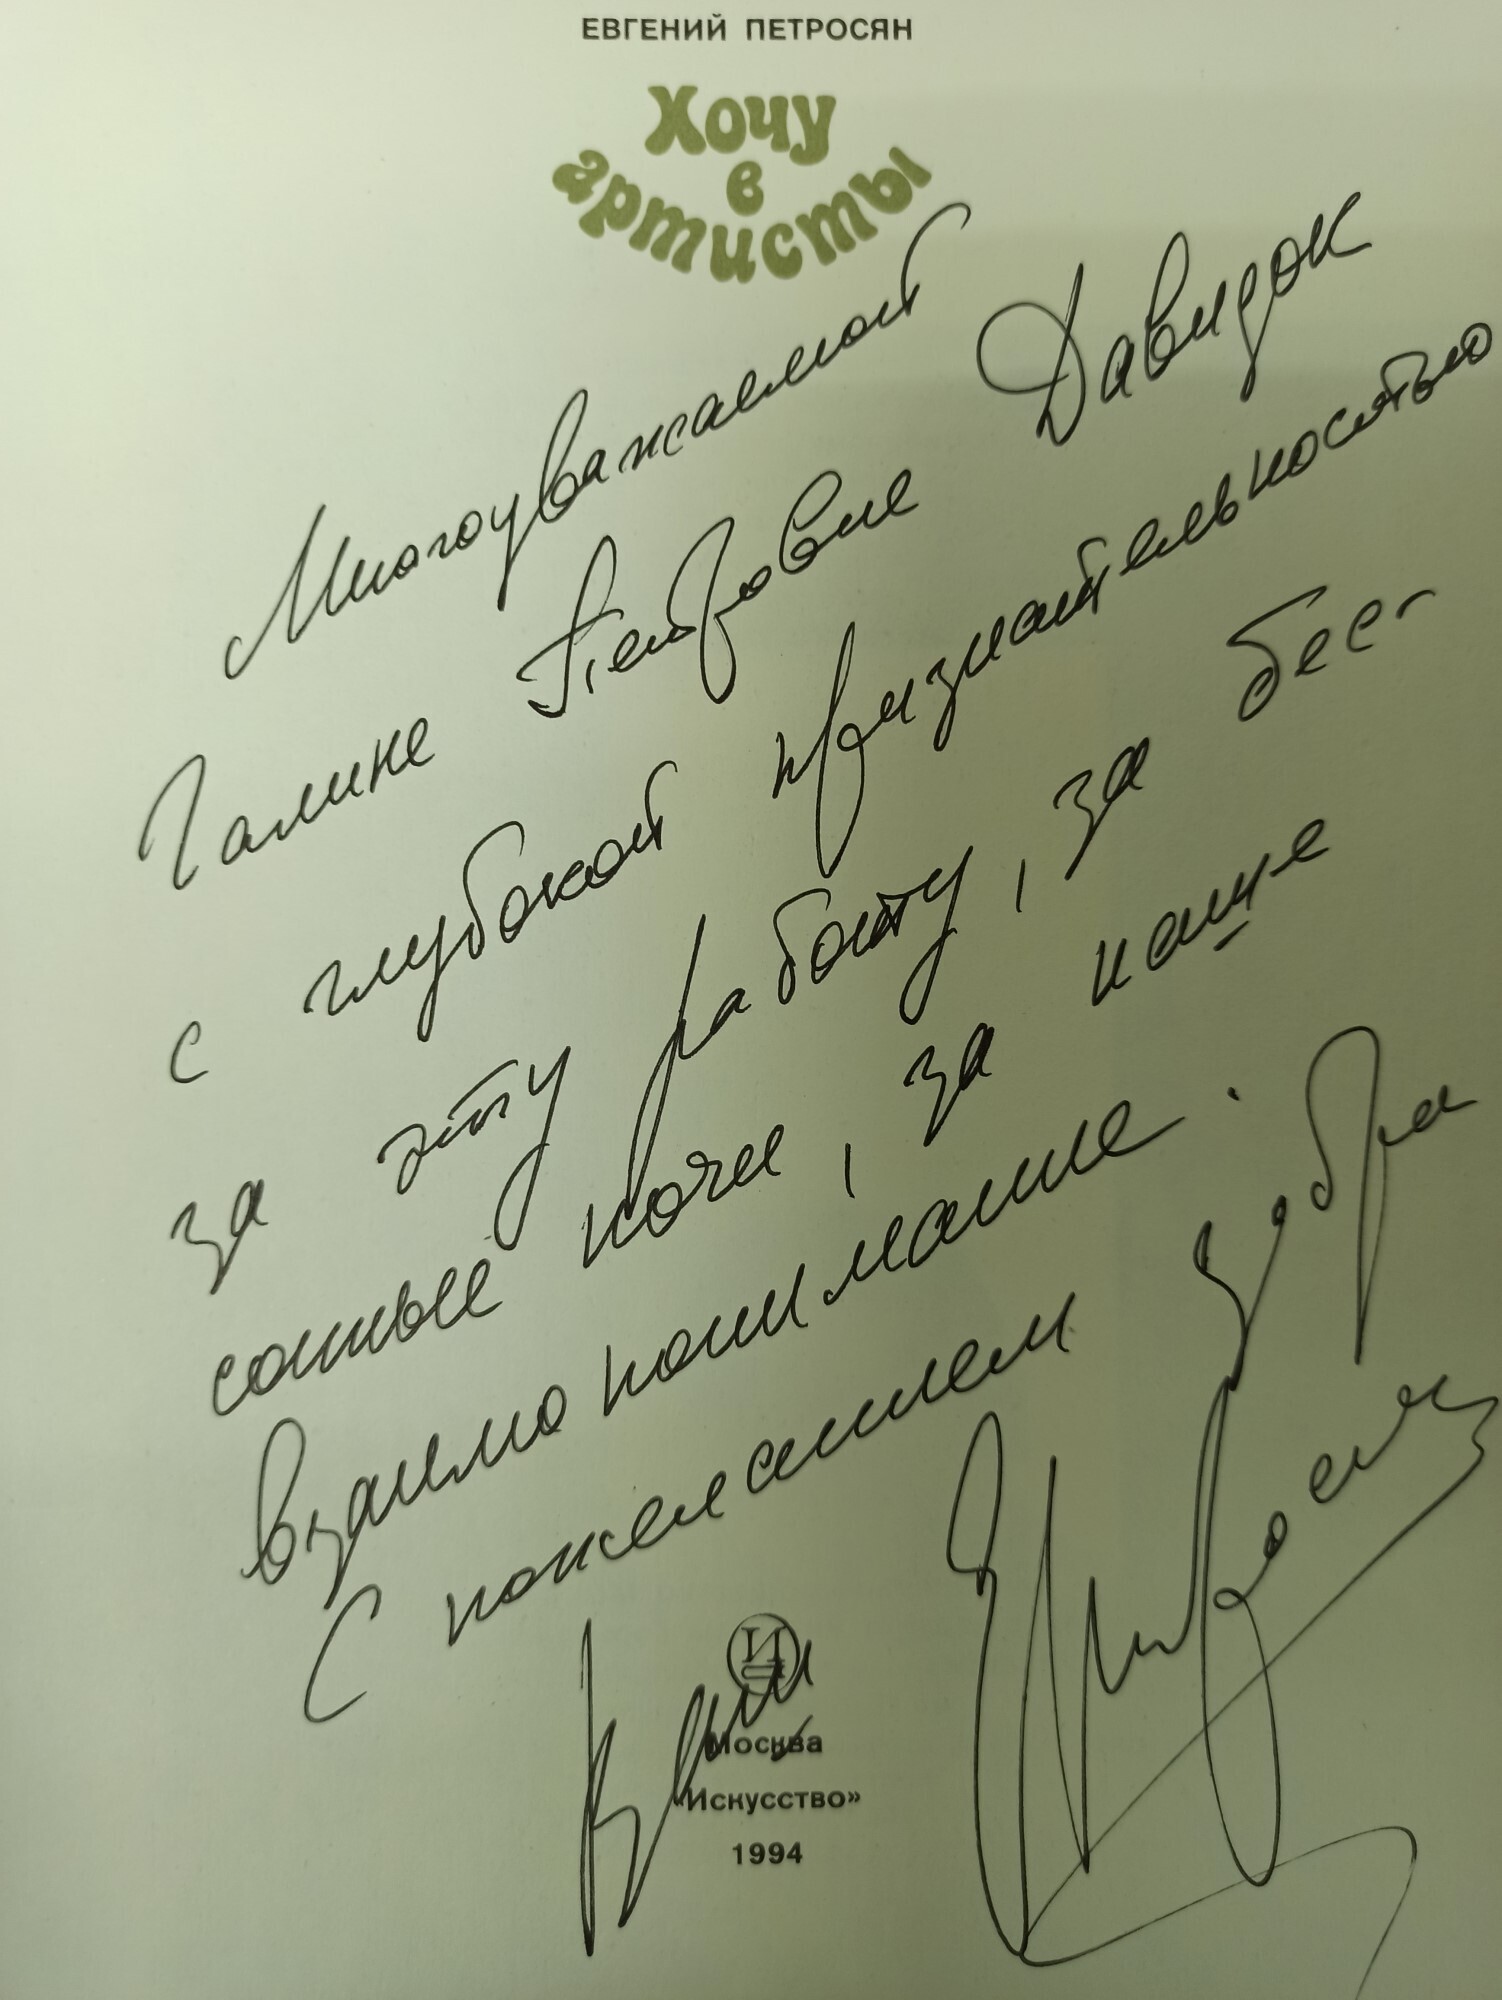 ЕВГЕНИЙ ПЕТРОСЯН
Хочу
в
артисты
Многоуважаемой
Галине Петровне Давидок
с глубокой признательностью
за эту работу, за бес-
сонные ночи, за наше
взаимопонимание.
С пожеланием добра
Ваш
ЕПетросян
И
Москва
«Искусство»
1994